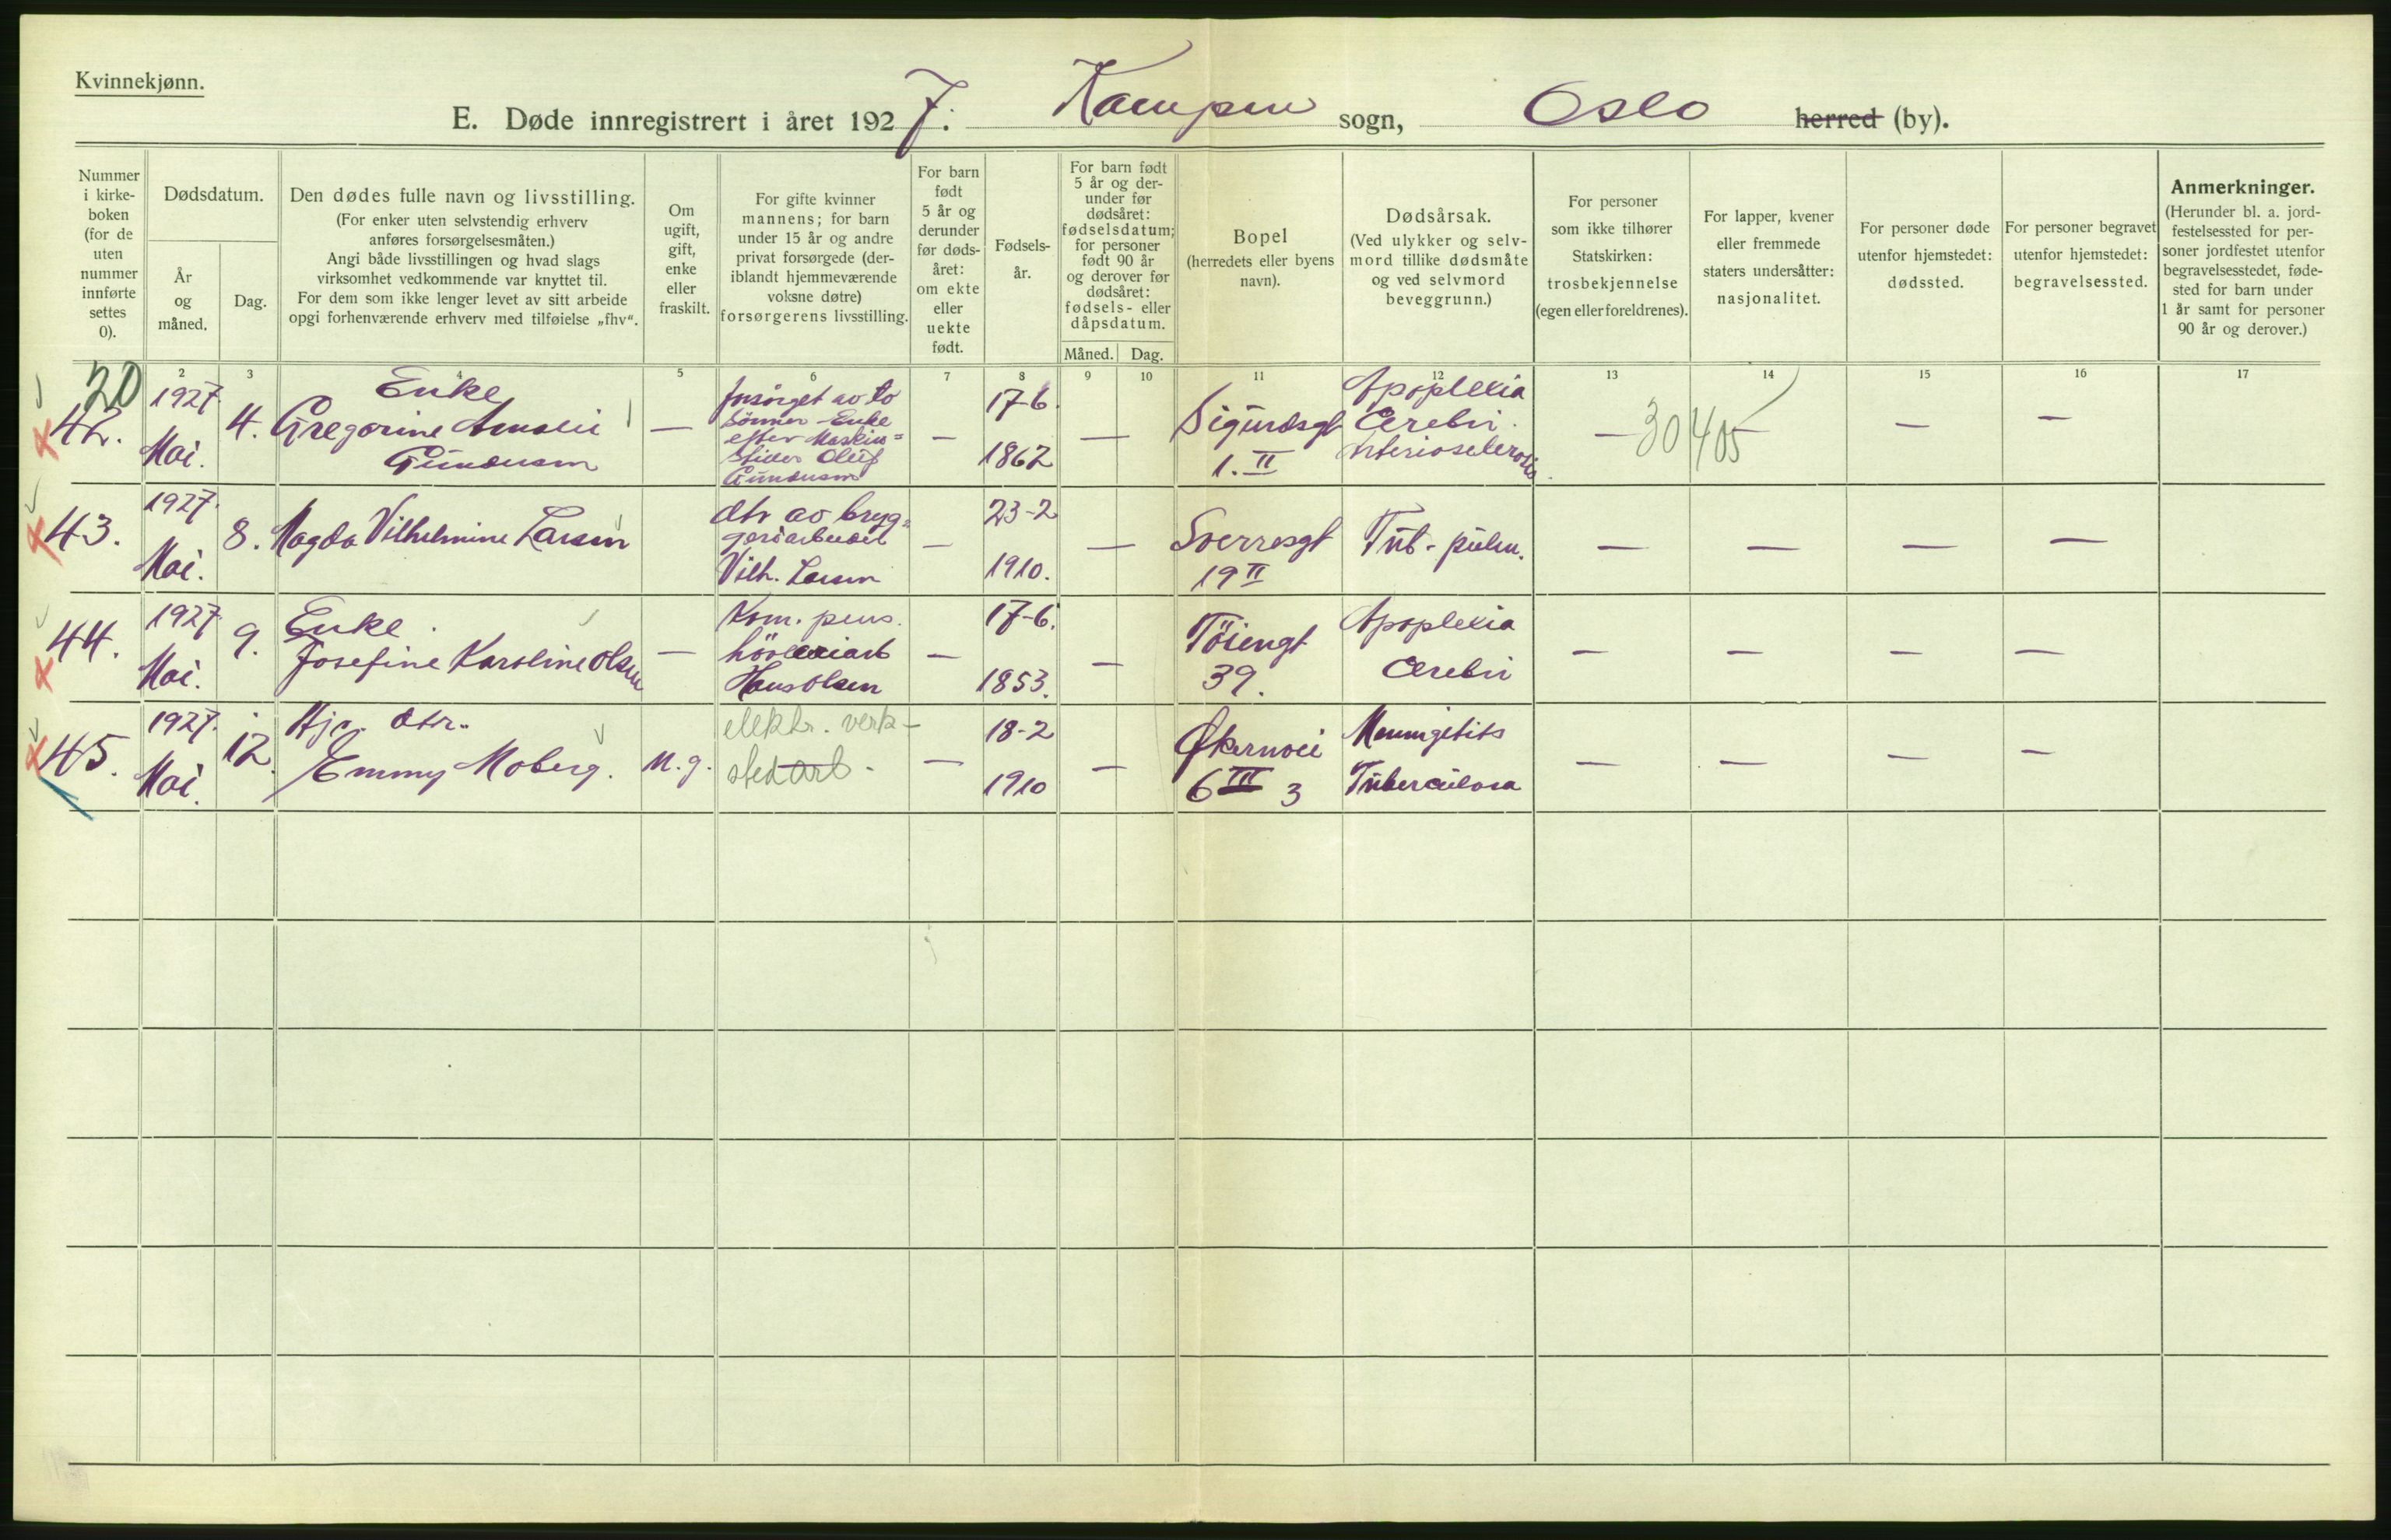 Kvinnekjønn.
E. Døde innregistrert i året 1927. Kampen sogn, Oslo herred (by).
Nummer
i kirke-
boken
(for de
uten
nummer
innførte
settes
0).
Dødsdatum.
År
og
måned.
Dag.
Den dødes fulle navn og livsstilling.
(For enker uten selvstendig erhverv
anføres forsørgelsesmåten.)
Angi både livsstillingen og hvad slags
virksomhet vedkommende var knyttet til.
For dem som ikke lenger levet av sitt arbeide
opgi forhenværende erhverv med tilføielse „fhv“.
Om
ugift,
gift,
enke
eller
fraskilt.
For gifte kvinner
mannens; for barn
under 15 år og andre
privat forsørgede (der-
iblandt hjemmeværende
voksne døtre)
forsørgerens livsstilling.
For barn
født
5 år og
derunder
før døds-
året:
om ekte
eller
uekte
født.
Fødsels-
år.
For barn født
5 år og der-
under før
dødsåret:
fødselsdatum;
for personer
født 90 år
og derover før
dødsåret:
fødsels- eller
dåpsdatum.
Måned. Dag.
Bopel
(herredets eller byens
navn).
Dødsårsak.
(Ved ulykker og selv-
mord tillike dødsmåte
og ved selvmord
beveggrunn.)
For personer
som ikke tilhører
Statskirken:
trosbekjennelse
(egen eller foreldrenes).
For lapper, kvener
eller fremmede
staters undersåtter:
nasjonalitet.
For personer døde
utenfor hjemstedet:
dødssted.
For personer begravet
utenfor hjemstedet:
begravelsessted.
Anmerkninger.
(Herunder bl. a. jord-
festelsessted for per-
soner jordfestet utenfor
begravelsesstedet, føde-
sted for barn under
1 år samt for personer
90 år og derover.)
2 3 4 5 6 7 8 9 10 11 12 13 14 15 16 17
20
42.
1927
Mai.
4.
Enke
Gregorine Amalie
Gundersen
—
forsörget av to
sönner - Enke
efter Maskin=
Oluf
Gundersen
—
17-6.
1862
—
Sigurdsgt
1. II
Apoplexia
Cerebri.
Arteriosclerosis.
— 30405
—
—
43.
1927.
Mai.
8.
Magda Vilhelmine Larsen
dtr av bryg=
geriarbeider
Vilh. Larsen
—
23-2
1910.
—
Sverresgt
19 II
Tub. pulm.
—
—
—
—
44.
1927
Mai.
9.
Enke.
Josefine Karoline Olsen
—
Kom. pens.
Hans Olsen
—
17-6.
1853.
—
Töiengt
39.
Apoplexia
Cerebri
—
—
—
—
45.
1927.
Mai.
12.
Hj. dtr.
Emmy Moberg.
u. g.
elektr. verk-
sted arb.
—
18-2
1910
—
Økernvei
6 III 3
Menningitits
Tuberculosa
—
—
—
—